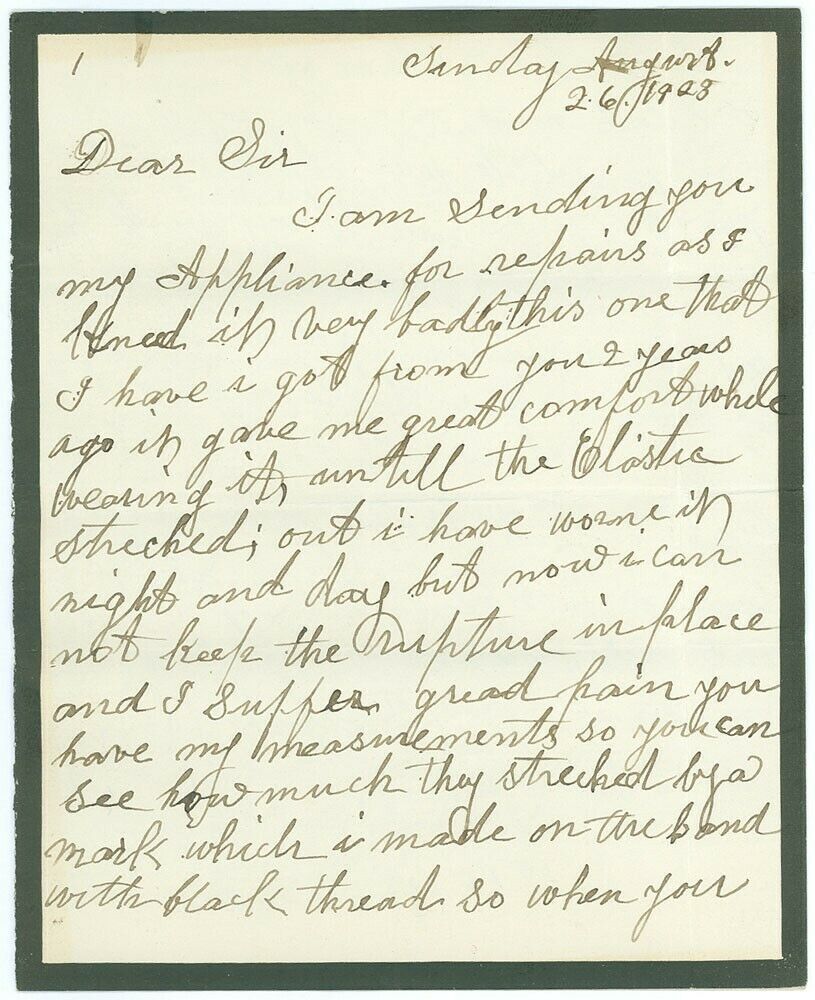 1
Sunday August.
26, 1923
Dear Sir
I am Sending you
my Appliance. for repairs as I
kneed it very badly this one that
I have i got from you 2 years
ago it gave me great comfort while
wearing it, untill the Elastic
streched; out i have worne it
night and day but now i can
not keep the rupture in place
and I Suffer gread pain you
have my measurements so you can
see how much they streched by a
mark which i made on the band
with black thread so when you